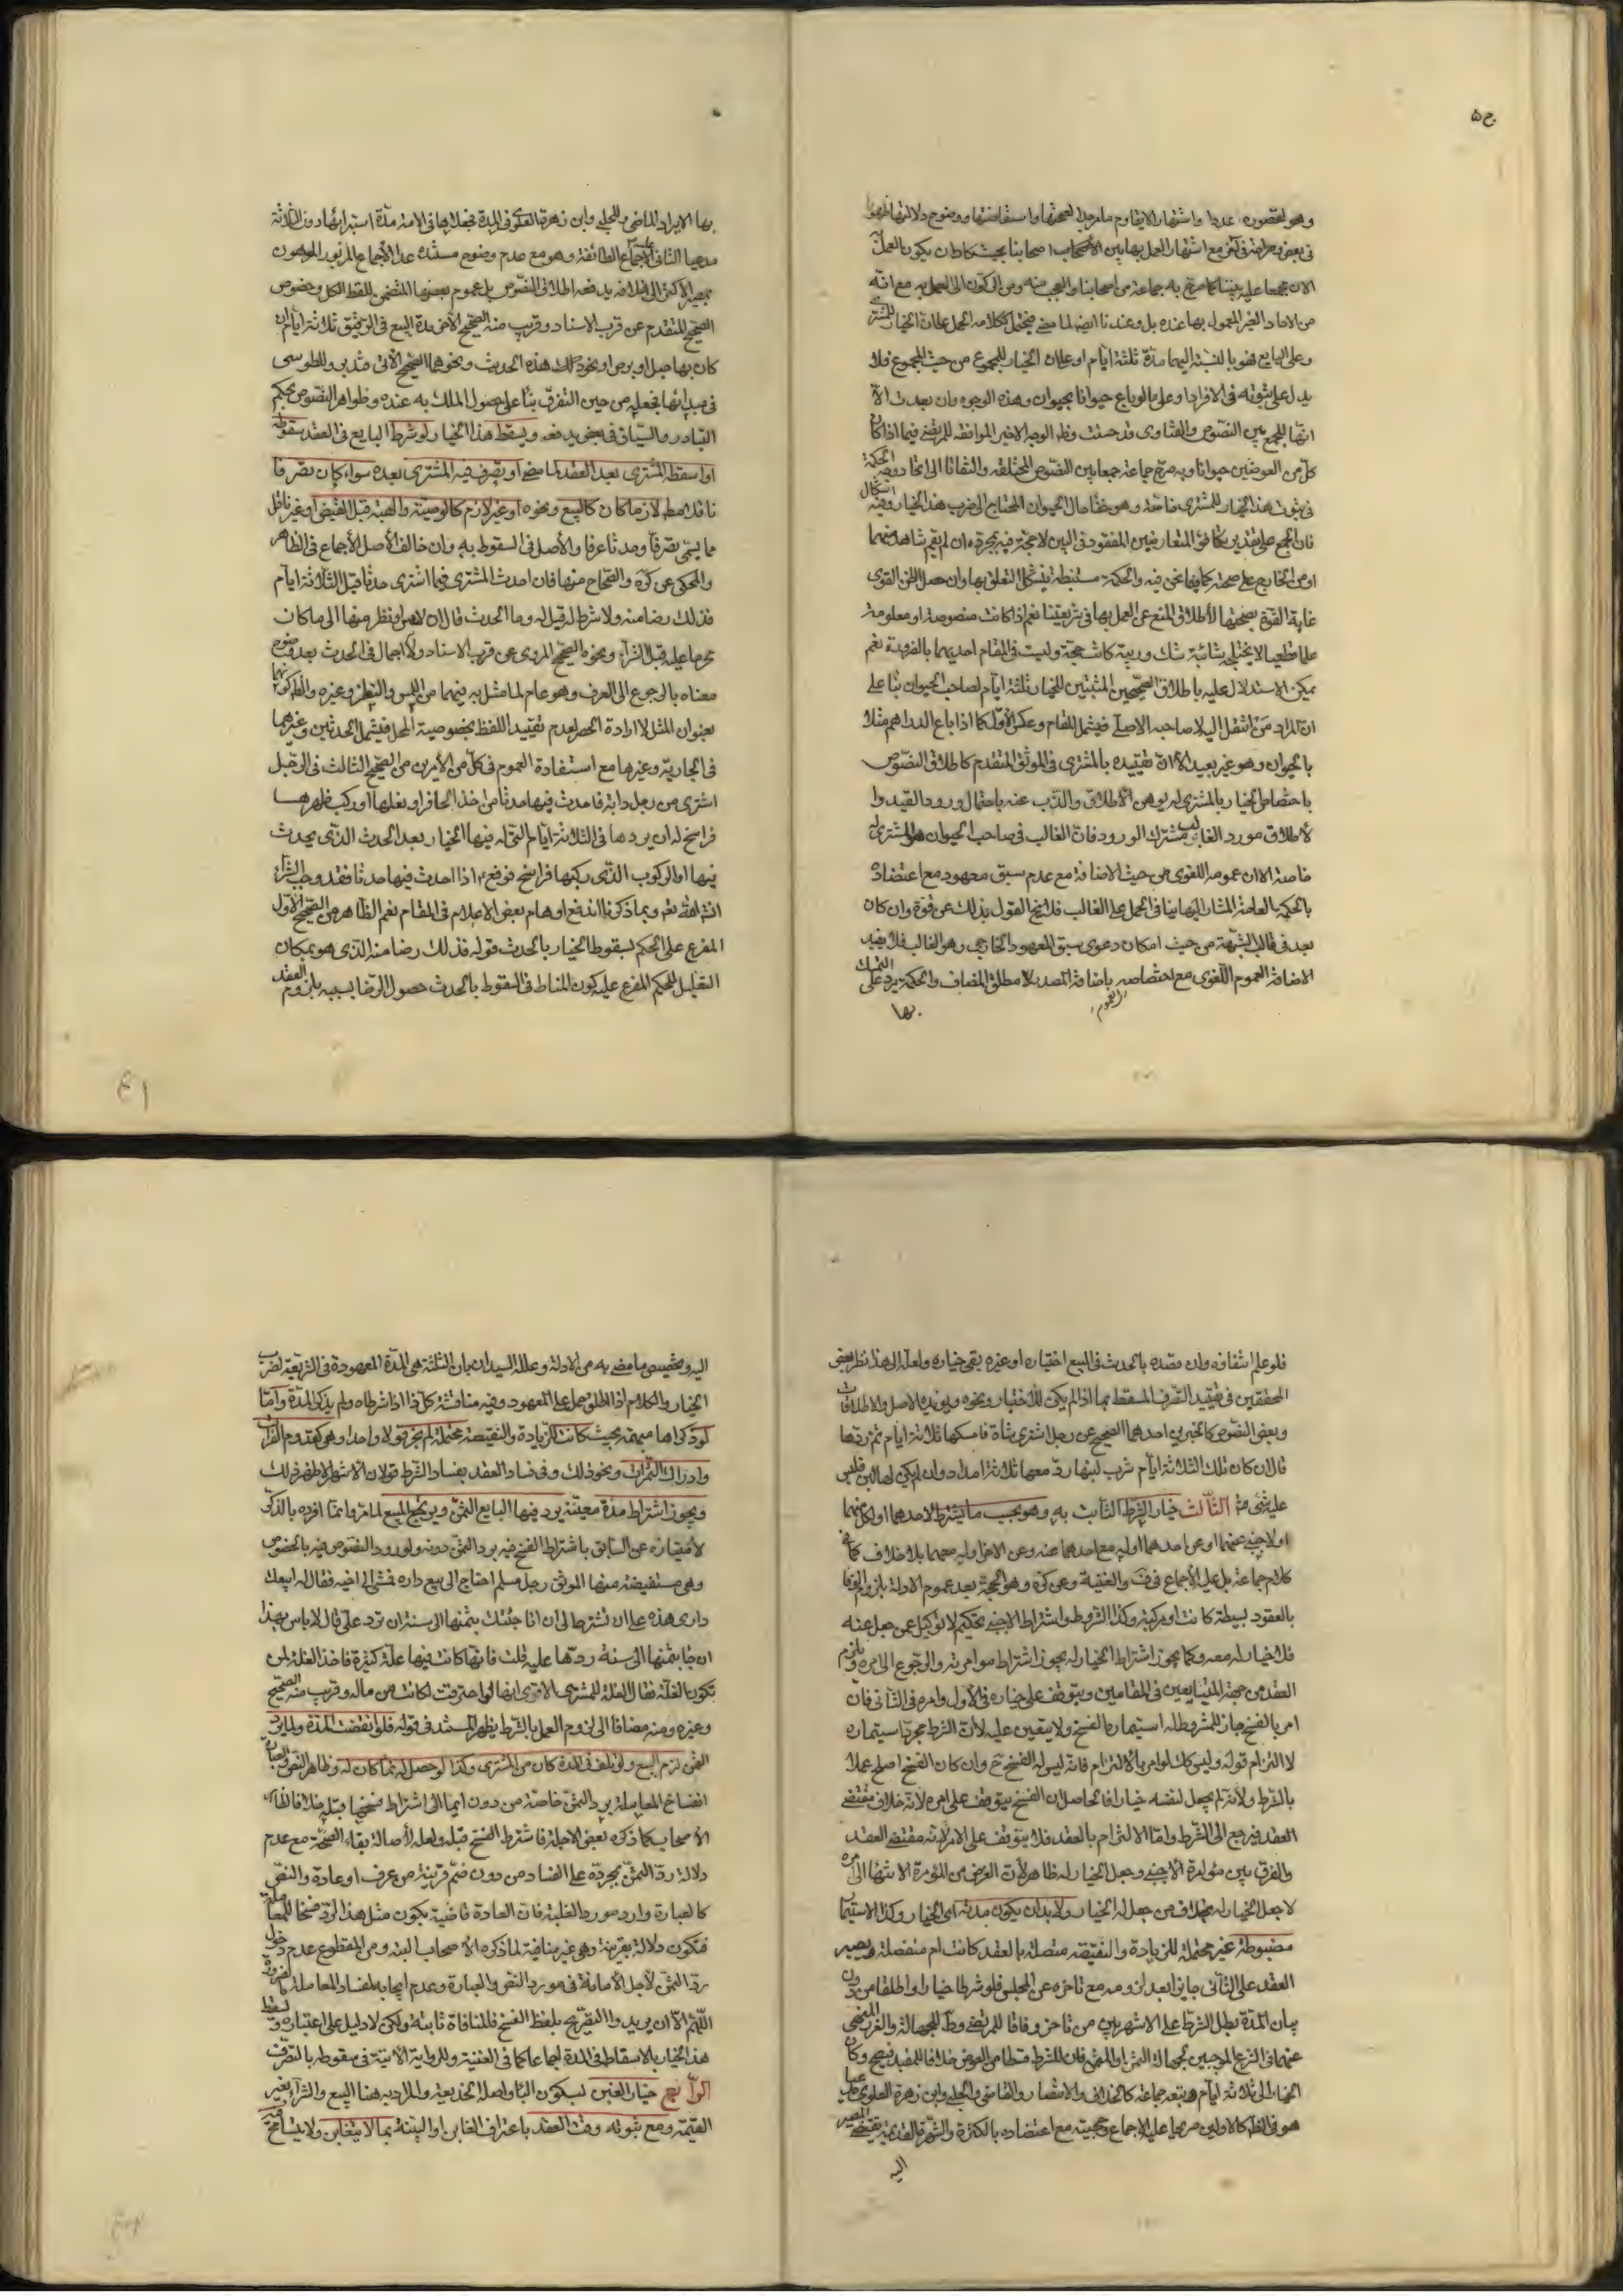 ح ۵
وهو لقصوره عددا واشتهارا لا يقاوم ما مر جدا لصحتها واستفاضتها ووضوح دلالتها
فى بعض مع اشتهار العمل بها بين الأصحاب اصحابنا بحيث كاد ان يكون العمل
الان مجمعا عليه بيننا كما صرح به جماعة من اصحابنا والعجب منه ومن الركون الى العمل به مع انه
من الاحاد الغير المعمول بها عنده بل وعندنا ايضا لما مضى فيحتمل ككلامه الحمل على ان الخيار للمشترى
وعلى البايع فهو بالنسبة اليهما مدة ثلثة ايام او على ان الخيار للمجموع من حيث المجموع فلا
يدل على ثبوته فى الافراد وعلى ما لو باع حيوانا بحيوان وهذه الوجوه وان بعدت الا
انها للجمع بين النصوص والفتاوى قد حسنت وظ الوجه الاخير الموافقة للمرتضى فيما اذا كان
كل من العوضين حيوانا وبه صرح جماعة جمعا بين النصوص المختلفة والتفاتا الى اتحاد وجه الحكمة
فى ثبوت هذا الخيار للمشترى خاصة وهو خفاء حال الحيوان المحتاج الى ضرب هذا الخيار وفيه اشكال
فان الجمع على تقدير تكافؤ المتعارضين المفقود فى البين لا حجة فيه بمجرده ان لم يقم شاهد منهما
او من الخارج على صحته كما فيما نحن فيه والحكمة مستنبطة يشكل التعلق بها وان حصل الظن القوى
غاية القوة بصحتها لاطلاق المنع عن العمل بها فى شريعتنا نعم اذا كانت منصوصة او معلومة
علما قطعيا لا يختلجه شائبة شك وريبة كانت حجة وليست فى المقام احديهما بالضرورة نعم
يمكن الاستدلال عليه باطلاق الصحيحين المثبتين للخيار ثلثة ايام لصاحب الحيوان بناء على
ان المراد من انتقل اليه لا صاحبه الاصلى فيشمل المقام وعكس الاول كما اذا باع الدراهم مثلا
بالحيوان وهو غير بعيد الا ان تقييده بالمشترى فى الموثق المتقدم كاطلاق النصوص
باختصاص الخيار بالمشترى له يوهن الاطلاق والذب عنه باحتمال ورود القيد و
لاطلاق مورد الغالب مشترك الورود فان الغالب فى صاحب الحيوان هو المشترى له
خاصة الا ان عمومه اللغوى من حيث الاضافة مع عدم سبق معهود مع اعتضاده
بالحكمة العامة المشار اليها ينافى الحمل على الغالب فلا يخ القول بذلك عن قوة وان كان
بعد فى قالب الشبهة من حيث امكان دعوى سبق المعهود الخارجى وهو الغالب فلا يفيد
الاضافة العموم اللغوى مع اختصاصه باضافة المصدر لا مطلق المضاف والحكمة يرد على التمسك
بها
بها الايراد الماضى وللحلى وابن زهرة العلوى فى المدة فجعلها فى الامة مدة استبرائها دون الثلاثة
مدعيا الثانى عليه اجماع الطائفة وهو مع عدم وضوح مستنده عدا الاجماع المزبور الموهون
بمصير الاكثر الى خلافه يدفعه اطلاق النصوص بل عموم بعضها المتضمن للفظ الكل وخصوص
الصحيح المتقدم عن قرب الاسناد وقريب منه الصحيح الاخر مدة البيع فى الرقيق ثلاثة ايام ان
كان بها حبل او برص او نحو ذلك هذه الحديث ونحوهما الصحيح الاتى فتدبر وللطوسى
فى مبدئها فجعله من حين التفرق بناء على حصول الملك به عنده وظواهر النصوص بحكم
التبادر والسياق فى بعض يدفعه ويسقط هذا الخيار لو شرط البايع فى العقد سقوطه
او اسقطه المشترى بعد العقد لما مضى او تصرف فيه المشترى بعده سواء كان تصرفا
ناقلا مط لازما كان كالبيع ونحوه او غير لازم كالوصية والهبة قبل القبض او غير ناقل
مما يسمى تصرفا وحدثا عرفا والاصل فى السقوط به وان خالف الاصل الاجماع فى الظاهر
والمحكى عن كره والصحاح منها فان احدث المشترى فيما اشترى حدثا قبل الثلاثة ايام
فذلك رضا منه ولا شرط له قيل له وما الحدث قال ان لامس او نظر منها الى ما كان
محرما عليه قبل الشراء ونحوه الصحيح المروى عن قرب الاسناد ولا اجمال فى الحدث بعد وضوح
معناه بالرجوع الى العرف وهو عام لما مثل به فيهما من اللمس والنظر وغيره والظ كونهما
بعنوان المثل لا ارادة الحصر لعدم تقييد اللفظ بخصوصية المحل فيشمل الحدثين وغيرهما
فى الجارية وغيرها مع استفادة العموم فى كل من الأمرين من الصحيح الثالث فى الرجل
اشترى من رجل دابة فاحدث فيها حدثا من اخذ الحافر او نعلها او ركب ظهرها
فراسخ له ان يردها فى الثلاثة ايام التى له فيها الخيار بعد الحدث الذى يحدث
فيها او الركوب الذى ركبها فراسخ فوقع ع اذا احدث فيها حدثا فقد وجب الشراء
انشاء الله تعم وبما ذكرنا اندفع اوهام بعض الاعلام فى المقام نعم الظاهر من الصحيح الاول
المفرع على الحكم بسقوط الخيار بالحدث قوله فذلك رضا منه الذى هو بمكان
التعليل للحكم المفرع عليه كون المناط فى السقوط بالحدث حصول الرضا بسببه بلزوم العقد
۴۱
فلو علم انتفاؤه وان قصده بالحدث فى المبيع اختياره او غيره بقى خياره ولعله الى هذا نظر بعض
المحققين فى تقييد التصرف المسقط بما اذا لم يكن للاختيار ونحوه ويؤيده الاصل والاطلاقات
وبعض النصوص كالخبرين احدهما الصحيح عن رجل اشترى شاة فامسكها ثلاثة ايام ثم ردها
قال ان كان تلك الثلاثة ايام شرب لبنها رد معها ثلاثة امداد وان لم يكن لها لبن فليس
عليه شئ الثالث خيار الشرط الثابت به وهو بحسب ما يشترط لاحدهما او لكل منهما
او لاجنبى عنهما او عن احدهما او له مع احدهما عنه وعن الاخر او له معهما بلا خلاف كما فى
كلام جماعة بل عليه الاجماع فى ف والغنية وعن كره وهو الحجة بعد عموم الادلة بلزوم الوفاء
بالعقود بسيطة كانت او مركبة وكذا الشروط واشتراط الاجنبى تحكيم لا توكيل عمن جعل عنه
فلا خيار له معه وكما يجوز اشتراط الخيار له يجوز اشتراط مؤامرته والرجوع الى امره ويلزم
العقد من جهة المتبايعين فى المقامين ويتوقف على خياره فى الاول وامره فى الثانى فان
امر بالفسخ جاز للمشروط له استيماره الفسخ ولا يتعين عليه لان الشرط مجرد استيماره
لا التزام قوله وليس كك لو امر بالالتزام فانه ليس له الفسخ ح وان كان الفسخ اصلح عملا
بالشرط ولانه لم يجعل لنفسه خيارا فالحاصل ان الفسخ يتوقف على امره لانه خلاف مقتضى
العقد فيرجع الى الشرط واما الالتزام بالعقد فلا يتوقف على الامر لانه مقتضى العقد
والفرق بين مؤامرة الاجنبى وجعل الخيار له ظاهر لان الغرض من المؤامرة الانتهاء الى امره
لا جعل الخيار له بخلاف من جعل له الخيار ولا بد ان يكون مدة اى الخيار وكذا الاستيمار
مضبوطة غير محتملة للزيادة والنقيصة متصلة بالعقد كانت ام منفصلة ويصير
العقد على الثانى جايزا بعد لزومه مع تاخره عن المجلس فلو شرطا خيارا واطلقا من دون
بيان المدة بطل الشرط على الاشهر بين من تاخر وفاقا للمرتضى وط للجهالة والغرر المنهى
عنهما فى الشرع الموجبين لجهالة الثمن او المثمن فان للشرط قسطا من العوض خلافا للمفيد فيصح وكان
الخيار الى ثلاثة ايام وتبعه جماعة كالخلاف والانتصار والقاضى والحلبى وابن زهرة العلوى مدعيا
هو فى الظ كالاولين صريحا عليه الاجماع وحجيته مع اعتضاده بالكثرة والشهرة القديمة يقتضى المصير
اليه
اليه وتخصيص ما مضى به من الادلة وعلله السيدان بان الثلثة هى المدة المعهودة فى الشريعة لضرب
الخيار والكلام اذا اطلق حمل على المعهود وفيه مناقشة كل ذا اذا شرطاه ولم يذكرا المدة واما
لو ذكراها مبهمة بحيث كانت للزيادة والنقيصة محتملة لم يجز قولا واحدا وهى كقدوم الغزاة
وادراك الثمرات ونحو ذلك وفى فساد العقد بفساد الشرط قولان الاشهر الاظهر ذلك
ويجوز اشتراط مدة معينة يرد فيها البايع الثمن ويرتجع المبيع لما مر وانما افرده بالذكر
لامتيازه عن السابق باشتراط الفسخ فيه برد الثمن دونه ولورود النصوص فيه بالخصوص
وهى مستفيضة منها الموثق رجل مسلم احتاج الى بيع داره فمشى الى اخيه فقال له ابيعك
دارى هذه على ان تشترط لى ان اذا جئتك بثمنها الى سنة ان ترد على قال لا باس بهذا
ان جاء بثمنها الى سنة ردها عليه قلت فانها كانت فيها غلة كثيرة فاخذ الغلة لمن
تكون الغلة فقال الغلة للمشترى الا ترى انها لو احترقت لكانت من ماله وقريب منه الصحيح
وغيره ومنه مضافا الى لزوم العمل بالشرط يظهر المستند فى قوله فلو انقضت المدة ولما يرد
الثمن لزم البيع ولو تلف فى المدة كان من المشترى وكذا لو حصل له نماء كان له وظاهر النص والعبارة
انفساخ المعاملة برد الثمن خاصة من دون ايماء الى اشتراط فسخها قبله خلافا لظاهر
الاصحاب كما ذكره بعض الاجلة فاشترط الفسخ قبله ولعله لأصالة بقاء الصحة مع عدم
دلالة رد الثمن بمجرده على الفساد من دون ضم قرينة من عرف او عادة والنص
كالعبارة وارد مورد الغلبة فان العادة قاضية بكون مثل هذا الرد فسخا للمعاملة
فتكون دلالة بقرينة وهى غير منافية لما ذكره الاصحاب البتة ومن المقطوع عدم دخول
رد الثمن لاجل الأمانة فى مورد النص والعبارة وعدم ايجابه لفساد المعاملة
اللهم الا ان يريدوا التصريح بلفظ الفسخ فالمنافاة ثابتة ولكن لا دليل على اعتباره ويسقط
هذا الخيار بالاسقاط فى المدة اجماعا كما فى الغنية وللرواية الاتية فى سقوطه بالتصرف
الرابع خيار الغبن بسكون الباء واصله الخديعة والمراد به هنا البيع والشراء بغير
القيمة ومع ثبوته وقت العقد باعتراف الغابن او البينة بما لا يتغابن ولا يتسامح